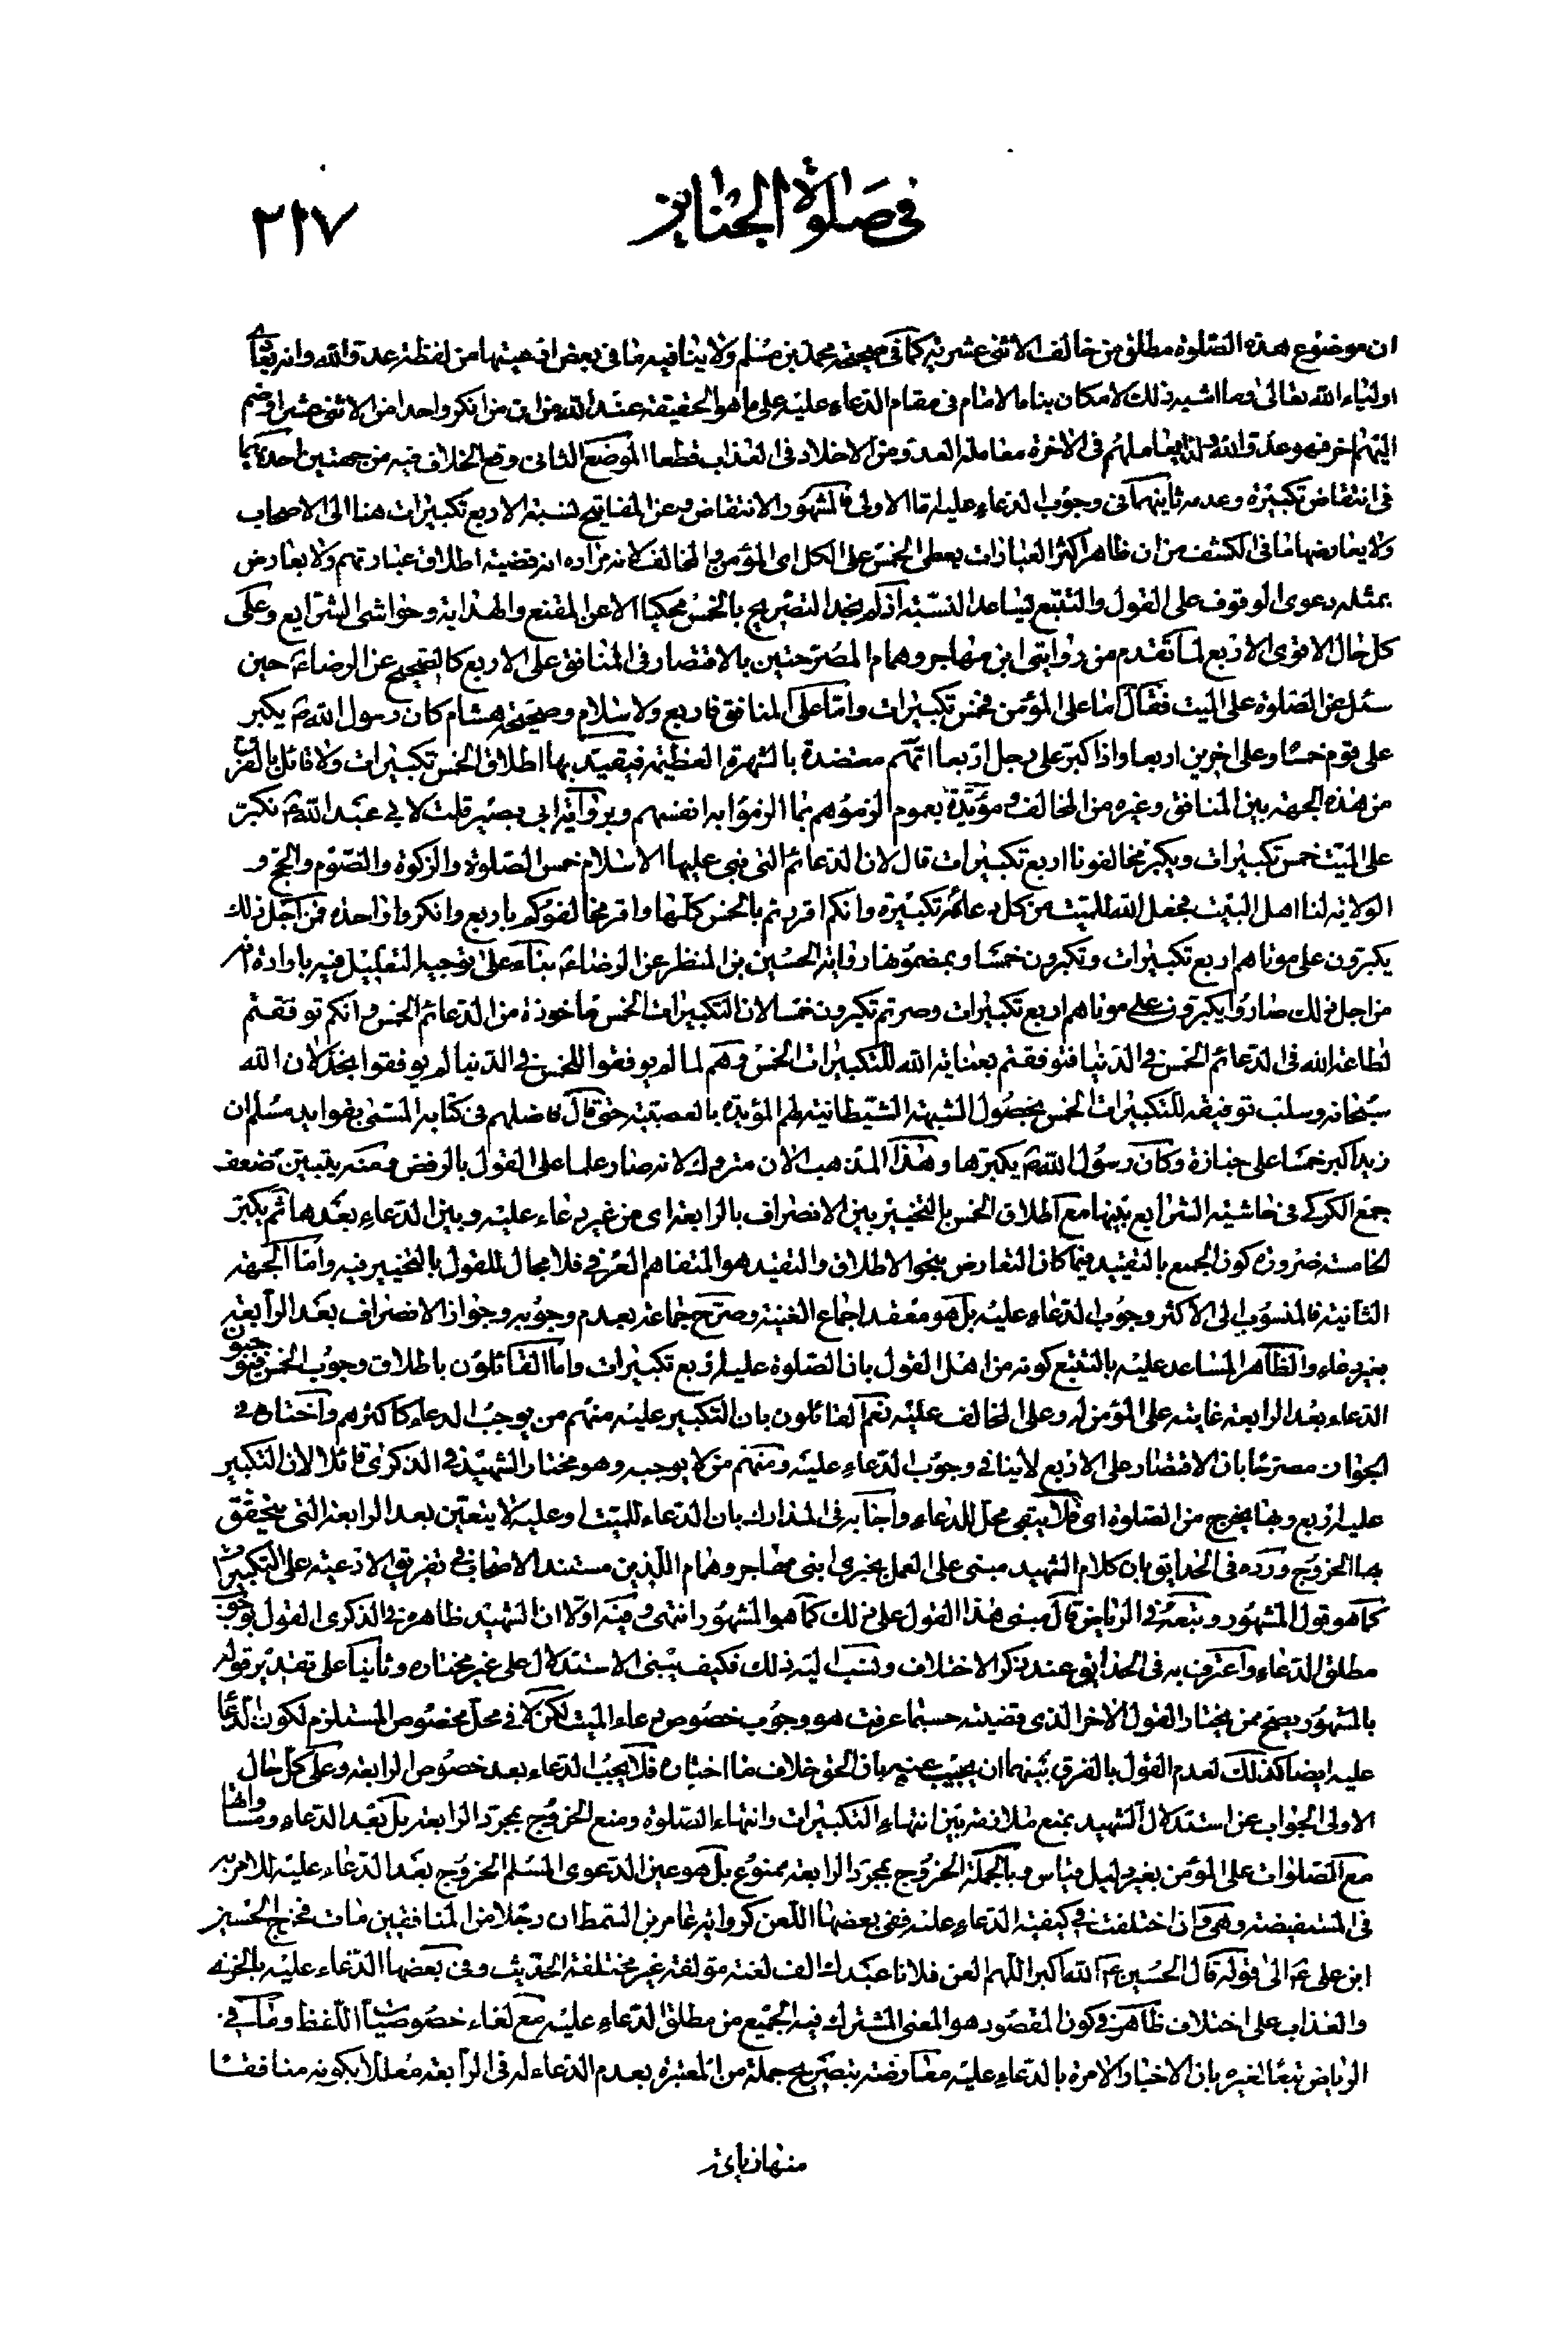 في صلوة الجنايز
٣١٧
ان موضوع هذه الصلوة مطلق من خالف الاثنى عشرية كما في صحيحة محمد بن مسلم ولا ينافيه ما في بعض ادعيتها من لفظة عدو الله وانه يعادي
اولياء الله تعالى وما اشبه ذلك لامكان بناء الامام في مقام الدعاء عليه على ما هو الحقيقة عند الله من ان من انكر واحدا من الاثنى عشر او ضم
اليهم اخر فهو عدو الله ولذا يعاملهم في الاخرة معاملة العدو من الاخلاد في العذاب قطعا الموضع الثاني وقع الخلاف فيه من جهتين احديهما
في انتقاص تكبيرة وعدمه ثانيهما في وجوب الدعاء عليه اما الاولى فالمشهور الانتقاص وعن المفاتيح نسبة الاربع تكبيرات هنا الى الاصحاب
ولا يعارضها ما في الكشف من ان ظاهر اكثر العبارات يعطى الخمس على الكل اى المؤمن والمخالف لانه مراده انه قضية اطلاق عباراتهم ولا يعارض
بمثله دعوى الوقوف على القول والتتبع يساعد النسبة اذ لم يجد التصريح بالخمس محكيا الا عن المقنع والهداية وحواشى الشرايع وعلى
كل حال الاقوى الاربع لما تقدم من روايتى ابن مهاجر وهمام المصرحتين بالاقتصار في المنافق على الاربع كالصحيح عن الرضاء ع حين
سئل عن الصلوة على الميت فقال اما على المؤمن فخمس تكبيرات واما على المنافق فاربع ولا سلام وصحيحة هشام كان رسول الله ص يكبر
على قوم خمسا وعلى اخرين اربعا واذا كبر على رجل اربعا اتهم معتضدة بالشهرة العظيمة فيقيد بها اطلاق الخمس تكبيرات ولا قائل بالفرق
من هذه الجهة بين المنافق وغيره من المخالف ومؤيدة بعموم الزموهم بما الزموا به انفسهم وبرواية ابي بصير قلت لابي عبد الله ع نكبر
على الميت خمس تكبيرات ويكبر مخالفونا اربع تكبيرات قال لان الدعائم التى بنى عليها الاسلام خمس الصلوة والزكوة والصوم والحج و
الولاية لنا اهل البيت فجعل الله للميت من كل دعامة تكبيرة وانكم اقررتم بالخمس كلها واقر مخالفوكم باربع وانكروا واحدة فمن اجل ذلك
يكبرون على موتاهم اربع تكبيرات وتكبرون خمسا وبمضمونها رواية الحسين بن المنظر عن الرضاء ع بناء على توجيه التعليل فيه بارادة انه
من اجل ذلك صاروا يكبرون على موتاهم اربع تكبيرات وصرتم تكبرون خمسا لان التكبيرات الخمس ماخوذة من الدعائم الخمس وانكم توفقتم
لطاعة الله في الدعائم الخمس في الدنيا فتوفقتم بعناية الله للتكبيرات الخمس وهم لما لم يوفقوا للخمس في الدنيا لم يوفقوا بخذلان الله
سبحانه وسلب توفيقه للتكبيرات الخمس بحصول الشبهة الشيطانية لهم المؤيدة بالعصبية حتى قال فاضلهم في كتابه المسمى بفوايد مسلم ان
زيدا كبر خمسا على جنازة وكان رسول الله ص يكبرها وهذا المذهب الان متروك لانه صار علما على القول بالرفض ومنه يتبين ضعف
جمع الكركي في حاشية الشرايع بينها مع اطلاق الخمس بالتخيير بين الانصراف بالرابعة اى من غير دعاء عليه وبين الدعاء بعدها ثم يكبر
الخامسة ضرورة كون الجمع بالتقييد فيما كان التعارض بنحو الاطلاق والتقيد هو المتفاهم العرفي فلا مجال للقول بالتخيير فيه واما الجهة
الثانية فالمنسوب الى الاكثر وجوب الدعاء عليه بل هو معقد اجماع الغنية وصرح جماعة بعدم وجوبه وجواز الانصراف بعد الرابعة
بغير دعاء والظاهر المساعد عليه بالتتبع كونه من اهل القول بان الصلوة عليه اربع تكبيرات واما القائلون باطلاق وجوب الخمس فيوجبون
الدعاء بعد الرابعة غايته على المؤمن له وعلى المخالف عليه نعم القائلون بان التكبير عليه منهم من يوجب الدعاء كاكثرهم واختاره في
الجواهر مصرحا بان الاقتصار على الاربع لا ينافي وجوب الدعاء عليه ومنهم من لا يوجبه وهو مختار الشهيد في الذكرى قائلا لان التكبير
عليه اربع وبها يخرج من الصلوة اى فلا يبقى محل للدعاء واجابه في المدارك بان الدعاء للميت او عليه لا يتعين بعد الرابعة التى يتحقق
بها الخروج ورده في الحدايق بان كلام الشهيد مبنى على العمل بخبرى ابنى مهاجر وهمام اللذين مستند الاصحاب في تفريق الادعية على التكبيرات
كما هو قول المشهور وتبعه في الرياض قال مبنى هذا القول على ذلك كما هو المشهور انتهى وفيه اولا ان الشهيد ظاهره في الذكرى القول بوجوب
مطلق الدعاء واعترف به في الحدايق عند ذكر الاختلاف ونسب اليه ذلك فكيف يبنى الاستدلال على غير مختاره وثانيا على تقدير قوله
بالمشهور يصح ممن يختار القول الاخر الذى قضيته حسبما عرفت هو وجوب خصوص دعاء الميت لكن لا في محل مخصوص المستلزم لكون الدعاء
عليه ايضا كذلك لعدم القول بالفرق بينهما ان يجيب عنه بان الحق خلاف ما اختاره فلا يجب الدعاء بعد خصوص الرابعة وعلى كل حال
الاولى الجواب عن استدلال الشهيد بمنع ملازمة بين انتهاء التكبيرات وانتهاء الصلوة ومنع الخروج بمجرد الرابعة بل بعد الدعاء ومساواتها
مع الصلوات على المؤمن بغير دليل قياس وبالجملة الخروج بمجرد الرابعة ممنوع بل هو عين الدعوى المسلم الخروج بعد الدعاء عليه للامر به
في المستفيضة وهي وان اختلفت في كيفية الدعاء عليه ففى بعضها اللعن كرواية عامر بن السمط ان رجلا من المنافقين مات فخرج الحسين
ابن على ع الى قوله قال الحسين ع الله اكبر اللهم العن فلانا عبدك الف لعنة مؤلفة غير مختلفة الحديث وفي بعضها الدعاء عليه بالخزيه
والعذاب على اختلاف ظاهره في كون المقصود هو المعنى المشترك فيه الجميع من مطلق الدعاء عليه مع لغاء خصوصيات اللفظ وما في
الرياض تبعا لغيره بان الاخبار الامرة بالدعاء عليه معارضة بتصريح جملة من المعتبرة بعدم الدعاء له في الرابعة معللا بكونه منافقا